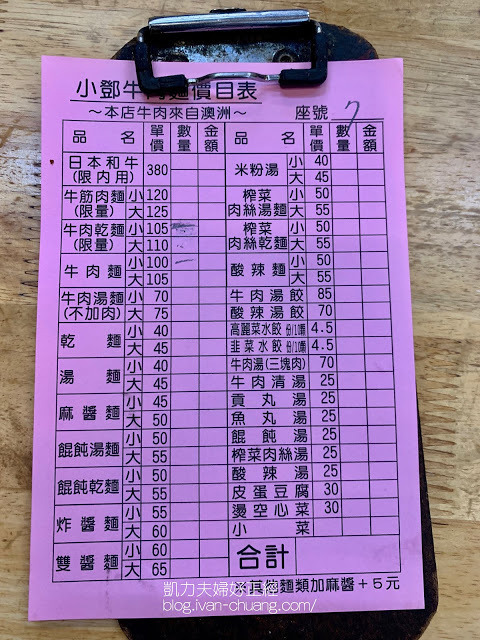 小鄧牛肉麵價目表
～本店牛肉來自澳洲～ 座號 7
品名 單價 數量 金額
日本和牛(限內用) 380
牛筋肉麵(限量) 小 120
大 125
牛肉乾麵(限量) 小 105
大 110
牛肉麵 小 100
大 105
牛肉湯麵(不加肉) 小 70
大 75
乾麵 小 40
大 45
湯麵 小 40
大 45
麻醬麵 小 45
大 50
餛飩湯麵 小 50
大 55
餛飩乾麵 小 50
大 55
炸醬麵 小 55
大 60
雙醬麵 小 60
大 65
品名 單價 數量 金額
米粉湯 小 40
大 45
榨菜肉絲湯麵 小 50
大 55
榨菜肉絲乾麵 小 50
大 55
酸辣麵 小 50
大 55
牛肉湯餃 85
酸辣湯餃 70
高麗菜水餃 份/10顆 4.5
韭菜水餃 份/10顆 4.5
牛肉湯(三塊肉) 70
牛肉清湯 25
貢丸湯 25
魚丸湯 25
餛飩湯 25
榨菜肉絲湯 25
酸辣湯 25
皮蛋豆腐 30
燙空心菜 30
小菜
合計
麵類加麻醬＋5元
凱力夫婦好
blog.ivan-chuang.com/